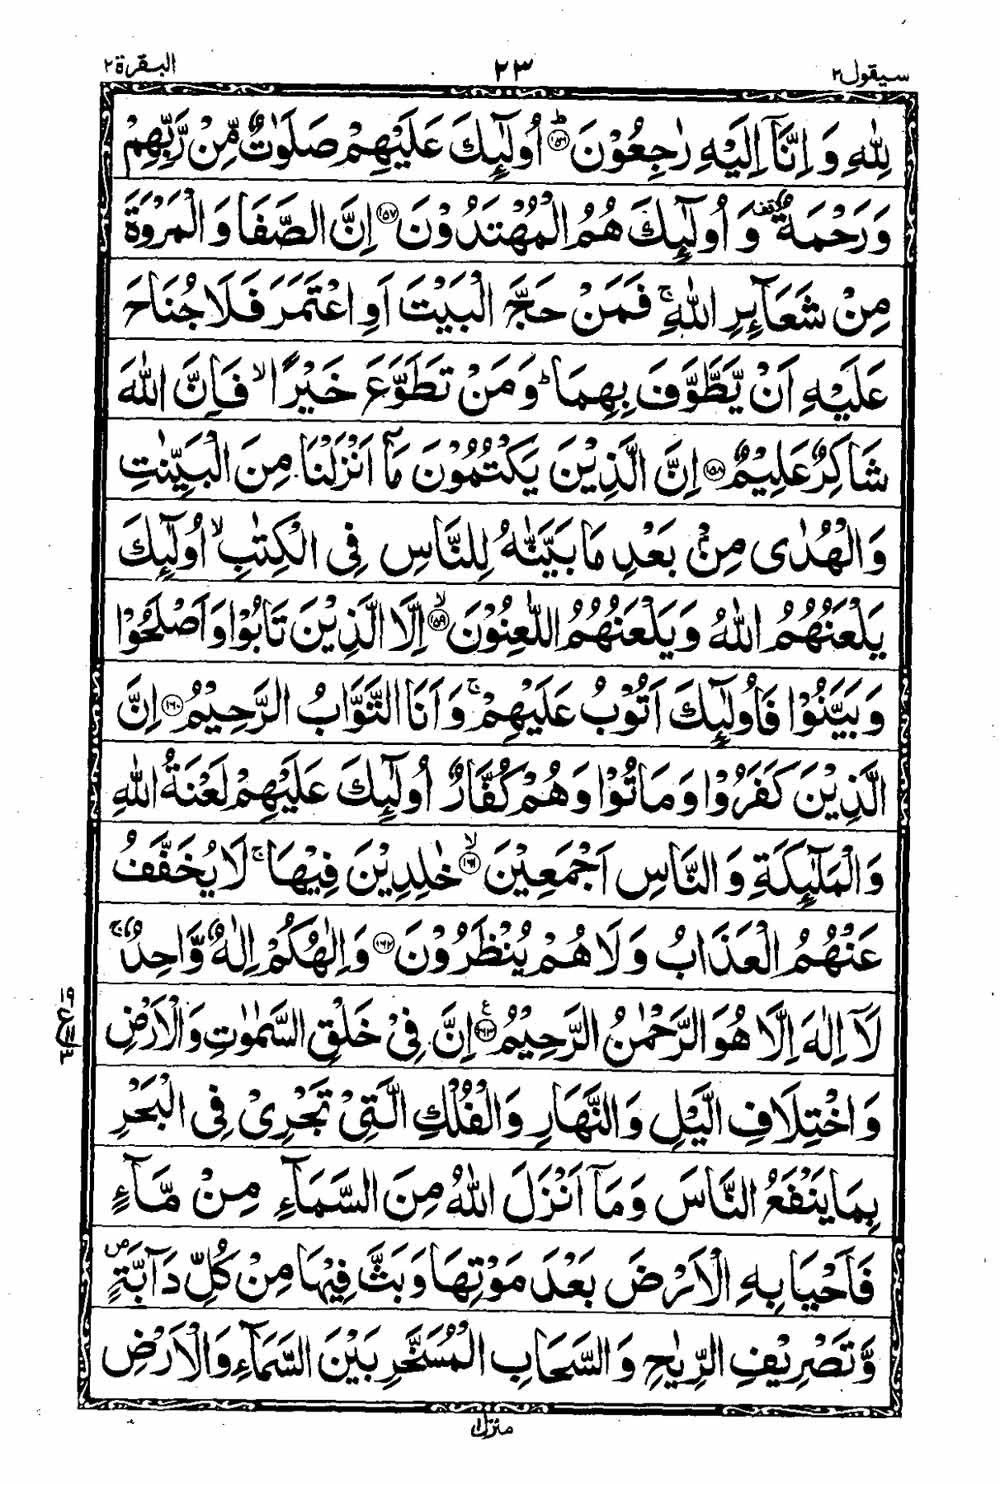 سيقول٢ ٢٣ البقرة٢
لِلّٰهِ وَ اِنَّاۤ اِلَيْهِ رٰجِعُوْنَ ؕ﴿۱۵۶﴾ اُولٰٓئِكَ عَلَيْهِمْ صَلَوٰتٌ مِّنْ رَّبِّهِمْ
وَ رَحْمَةٌ ۫ وَ اُولٰٓئِكَ هُمُ الْمُهْتَدُوْنَ ﴿۱۵۷﴾ اِنَّ الصَّفَا وَ الْمَرْوَةَ
مِنْ شَعَآئِرِ اللّٰهِ ۚ فَمَنْ حَجَّ الْبَيْتَ اَوِ اعْتَمَرَ فَلَا جُنَاحَ
عَلَيْهِ اَنْ يَّطَّوَّفَ بِهِمَا ؕ وَ مَنْ تَطَوَّعَ خَيْرًا ۙ فَاِنَّ اللّٰهَ
شَاكِرٌ عَلِيْمٌ ﴿۱۵۸﴾ اِنَّ الَّذِيْنَ يَكْتُمُوْنَ مَاۤ اَنْزَلْنَا مِنَ الْبَيِّنٰتِ
وَ الْهُدٰى مِنْۢ بَعْدِ مَا بَيَّنّٰهُ لِلنَّاسِ فِى الْكِتٰبِ ۙ اُولٰٓئِكَ
يَلْعَنُهُمُ اللّٰهُ وَ يَلْعَنُهُمُ اللّٰعِنُوْنَ ۙ﴿۱۵۹﴾ اِلَّا الَّذِيْنَ تَابُوْا وَ اَصْلَحُوْا
وَ بَيَّنُوْا فَاُولٰٓئِكَ اَتُوْبُ عَلَيْهِمْ ۚ وَ اَنَا التَّوَّابُ الرَّحِيْمُ ﴿۱۶۰﴾ اِنَّ
الَّذِيْنَ كَفَرُوْا وَ مَاتُوْا وَ هُمْ كُفَّارٌ اُولٰٓئِكَ عَلَيْهِمْ لَعْنَةُ اللّٰهِ
وَ الْمَلٰٓئِكَةِ وَ النَّاسِ اَجْمَعِيْنَ ۙ﴿۱۶۱﴾ خٰلِدِيْنَ فِيْهَا ۚ لَا يُخَفَّفُ
عَنْهُمُ الْعَذَابُ وَ لَا هُمْ يُنْظَرُوْنَ ﴿۱۶۲﴾ وَ اِلٰهُكُمْ اِلٰهٌ وَّاحِدٌ ۚ
لَاۤ اِلٰهَ اِلَّا هُوَ الرَّحْمٰنُ الرَّحِيْمُ ﴿۱۶۳﴾ اِنَّ فِيْ خَلْقِ السَّمٰوٰتِ وَ الْاَرْضِ
وَ اخْتِلَافِ الَّيْلِ وَ النَّهَارِ وَ الْفُلْكِ الَّتِيْ تَجْرِيْ فِى الْبَحْرِ
بِمَا يَنْفَعُ النَّاسَ وَ مَاۤ اَنْزَلَ اللّٰهُ مِنَ السَّمَآءِ مِنْ مَّآءٍ
فَاَحْيَا بِهِ الْاَرْضَ بَعْدَ مَوْتِهَا وَ بَثَّ فِيْهَا مِنْ كُلِّ دَآبَّةٍ ۪
وَّ تَصْرِيْفِ الرِّيٰحِ وَ السَّحَابِ الْمُسَخَّرِ بَيْنَ السَّمَآءِ وَ الْاَرْضِ
منزل١